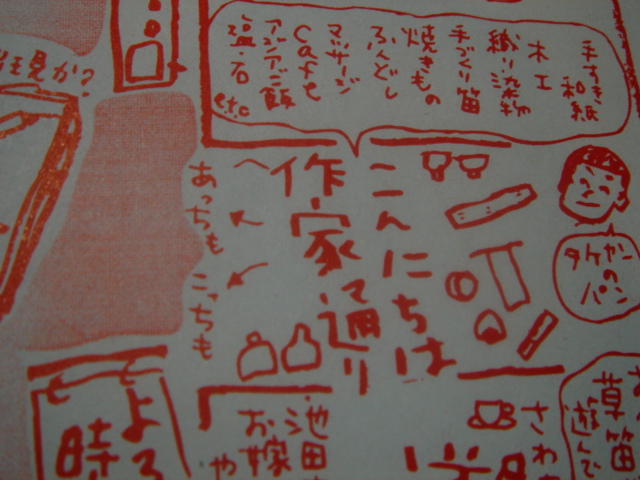 手すき和紙
木工
織り染物
手づくり笛
焼きもの
ふんどし
マッサージ
Cafe
アジアご飯
塩石
etc
こんにちは
作家通り
あっちも
こっちも
タケヤンのパン
見か?
よろ
時
池田
お嫁
や
さわ
草笛
遊んで